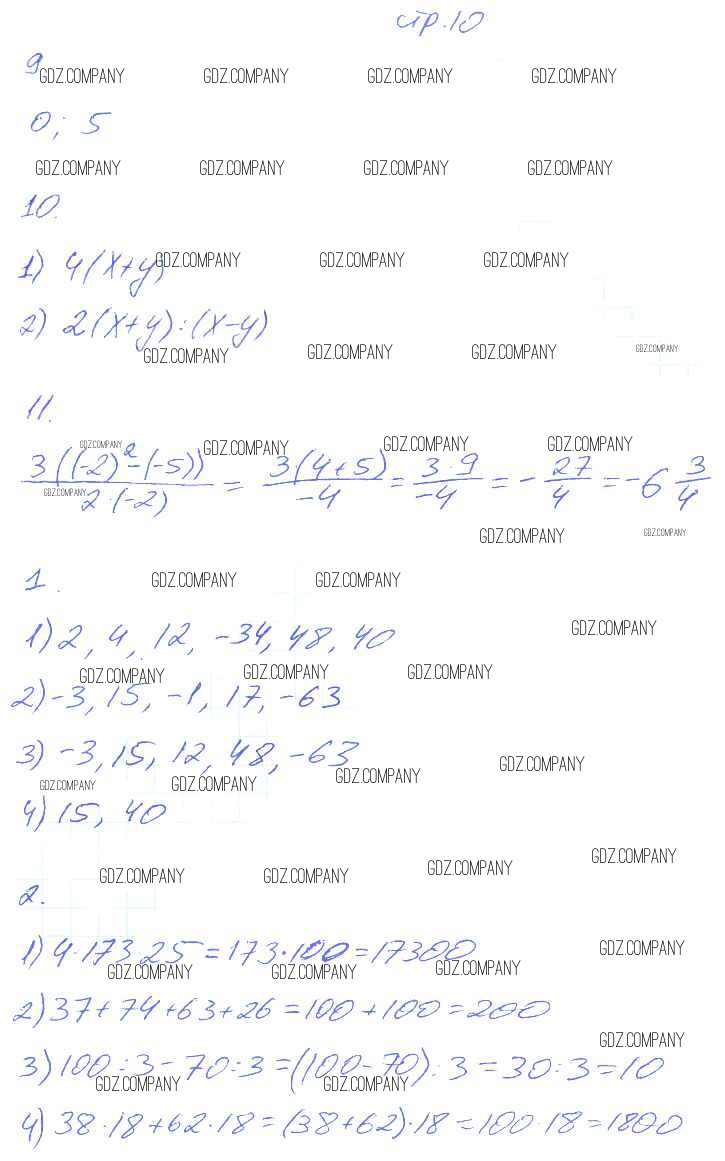 стр.10
9
GDZ.COMPANY GDZ.COMPANY GDZ.COMPANY GDZ.COMPANY
0; 5
GDZ.COMPANY GDZ.COMPANY GDZ.COMPANY GDZ.COMPANY
10.
1) 4(x+y) GDZ.COMPANY GDZ.COMPANY GDZ.COMPANY
2) 2(x+y):(x-y)
GDZ.COMPANY GDZ.COMPANY GDZ.COMPANY GDZ.COMPANY
11.
GDZ.COMPANY GDZ.COMPANY GDZ.COMPANY GDZ.COMPANY
3((-2)²-(-5))/2·(-2) = 3(4+5)/-4 = 3·9/-4 = -27/4 = -6 3/4
GDZ.COMPANY
GDZ.COMPANY GDZ.COMPANY
1. GDZ.COMPANY GDZ.COMPANY
1) 2, 4, 12, -34, 48, 40 GDZ.COMPANY
GDZ.COMPANY GDZ.COMPANY GDZ.COMPANY
2) -3, 15, -1, 17, -63
3) -3, 15, 12, 48, -63
GDZ.COMPANY GDZ.COMPANY GDZ.COMPANY GDZ.COMPANY
4) 15, 40
GDZ.COMPANY GDZ.COMPANY GDZ.COMPANY GDZ.COMPANY
2.
1) 4·173·25 = 173·100 = 17300 GDZ.COMPANY
GDZ.COMPANY GDZ.COMPANY GDZ.COMPANY
2) 37+74+63+26 = 100+100 = 200
GDZ.COMPANY
3) 100:3-70:3 = (100-70):3 = 30:3 = 10
GDZ.COMPANY GDZ.COMPANY
4) 38·18+62·18 = (38+62)·18 = 100·18 = 1800